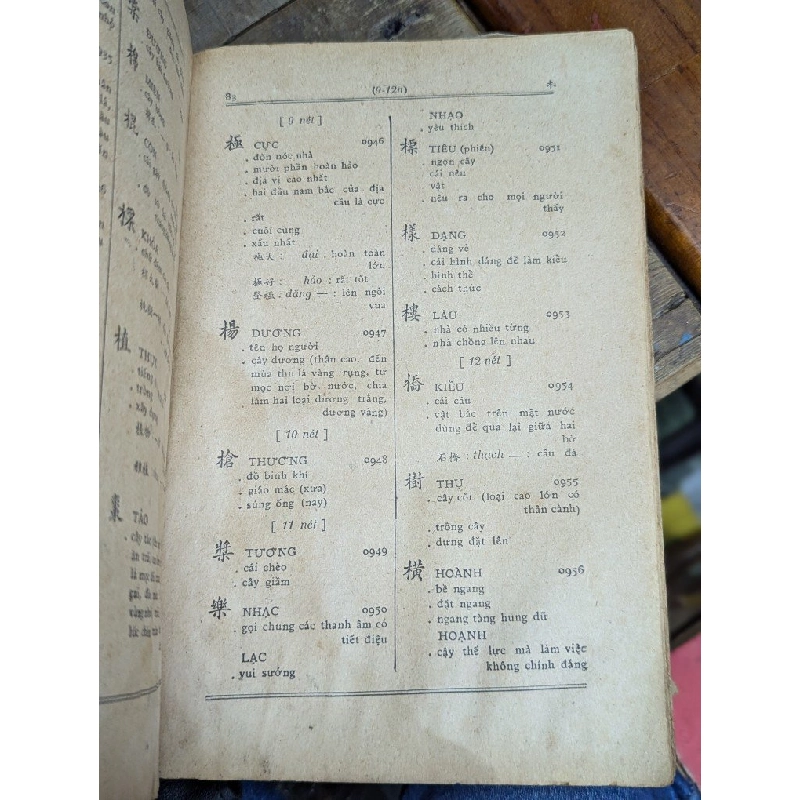 (9-12n)
[ 9 nét ]
極 CỰC 0946
. đòn nóc nhà
. mười phần hoàn hảo
. địa vị cao nhất
. hai đầu nam bắc của địa
cầu là cực
. rất
. cuối cùng
. xấu nhất
極大 : đại : hoàn toàn
lớn
極好 : hảo : rất tốt
登極 : đăng — : lên ngôi
vua
楊 DƯƠNG 0947
. tên họ người
. cây dương (thân cao, đến
mùa thu lá vàng rụng, tự
mọc nơi bờ nước, chia
làm hai loại dương trắng,
dương vàng)
[ 10 nét ]
槍 THƯƠNG 0948
. đồ binh khí
. giáo mác (xưa)
. súng ống (nay)
[ 11 nét ]
槳 TƯƠNG 0949
. cái chèo
. cây giầm
樂 NHẠC 0950
. gọi chung các thanh âm có
tiết điệu
LẠC
. vui sướng
NHẠO
. yêu thích
標 TIÊU (phiên) 0951
. ngọn cây
. cái nêu
. vật
. nêu ra cho mọi người
thấy
樣 DẠNG 0952
. dáng vẻ
. cái hình dáng để làm kiểu
. hình thể
. cách thức
樓 LÂU 0953
. nhà có nhiều từng
. nhà chồng lên nhau
[ 12 nét ]
橋 KIỀU 0954
. cái cầu
. vật bắc trên mặt nước
dùng để qua lại giữa hai
bờ
石橋 : thạch — : cầu đá
樹 THỤ 0955
. cây cối (loại cao lớn có
thân cành)
. trồng cây
. dựng đặt lên
橫 HOÀNH 0956
. bề ngang
. đặt ngang
. ngang tàng hung dữ
HOẠNH
. cậy thế lực mà làm việc
không chính đáng
植 THỰC
棗 TÁO